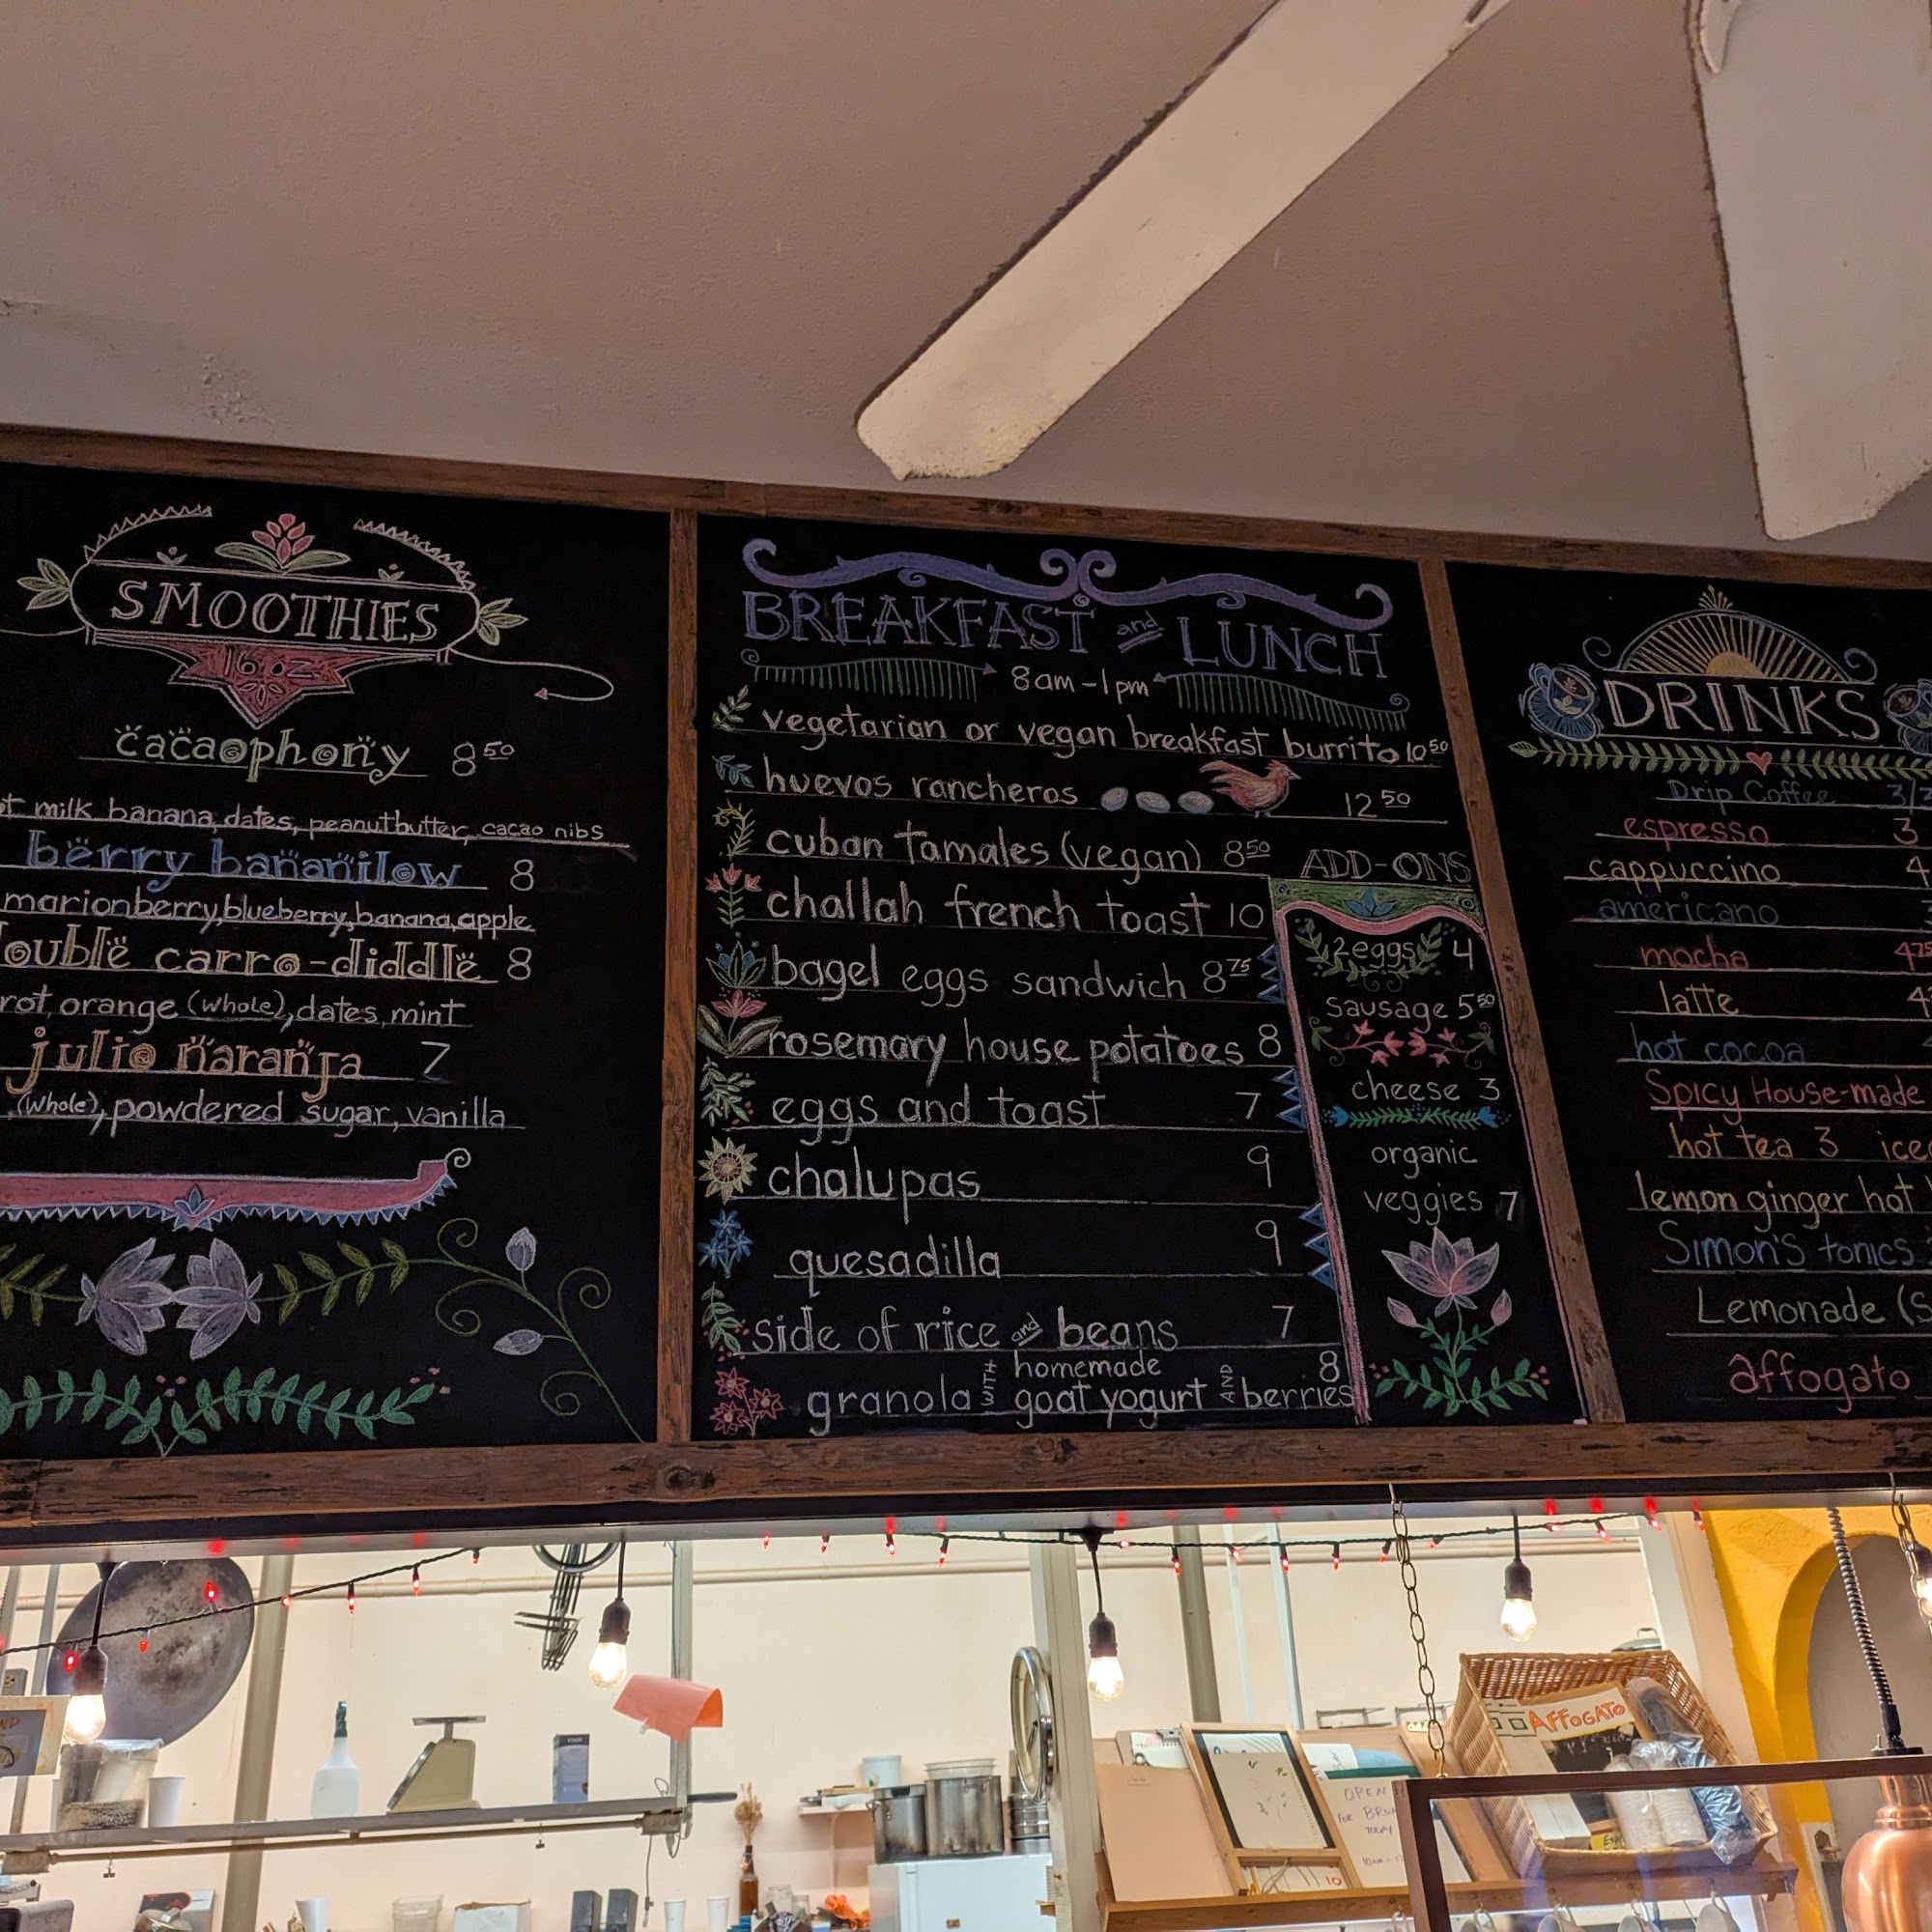 SMOOTHIES
16oz
cacaophony 8 50
milk banana, dates, peanutbutter, cacao nibs
berry bananilow 8
marionberry, blueberry, banana, apple
carro-diddle 8
orange (whole), dates, mint
julio naranja 7
(whole), powdered sugar, vanilla
BREAKFAST and LUNCH
8am-1pm
vegetarian or vegan breakfast burrito 10 50
huevos rancheros 12 50
cuban tamales (vegan) 8 50
challah french toast 10
bagel eggs sandwich 8 75
rosemary house potatoes 8
eggs and toast 7
chalupas 9
quesadilla 9
side of rice and beans 7
granola WITH homemade goat yogurt AND berries 8
ADD-ONS
2 eggs 4
sausage 5 50
cheese 3
organic
veggies 7
DRINKS
Drip Coffee 3/
espresso 3
cappuccino 4
americano
mocha 4 75
latte 4
hot cocoa
Spicy House-made
hot tea 3
lemon ginger hot
Simon's tonics
Lemonade
affogato
AFFOGATO
OPEN
FOR
TODAY